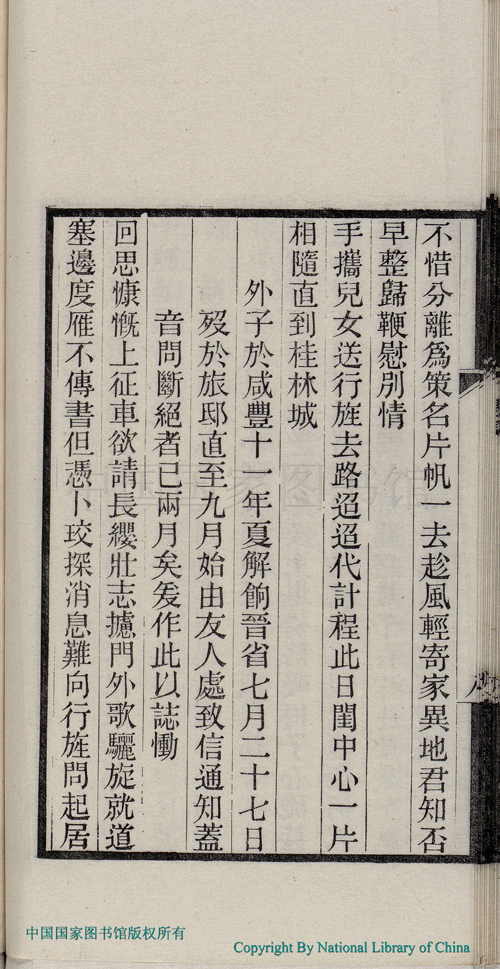 不惜分離為策名片帆一去趁風輕寄家異地君知否
早整歸鞭慰別情
手攜兒女送行旌去路迢迢代計程此日閨中心一片
相隨直到桂林城
外子於咸豐十一年夏解餉晉省七月二十七日
歿於旅邸直至九月始由友人處致信通知蓋
音問斷絕者已兩月矣爰作此以誌慟
回思慷慨上征車欲請長纓壯志攄門外歌驪旋就道
塞邊度雁不傳書但憑卜珓探消息難向行旌問起居
中国国家图书馆版权所有
Copyright By National Library of China